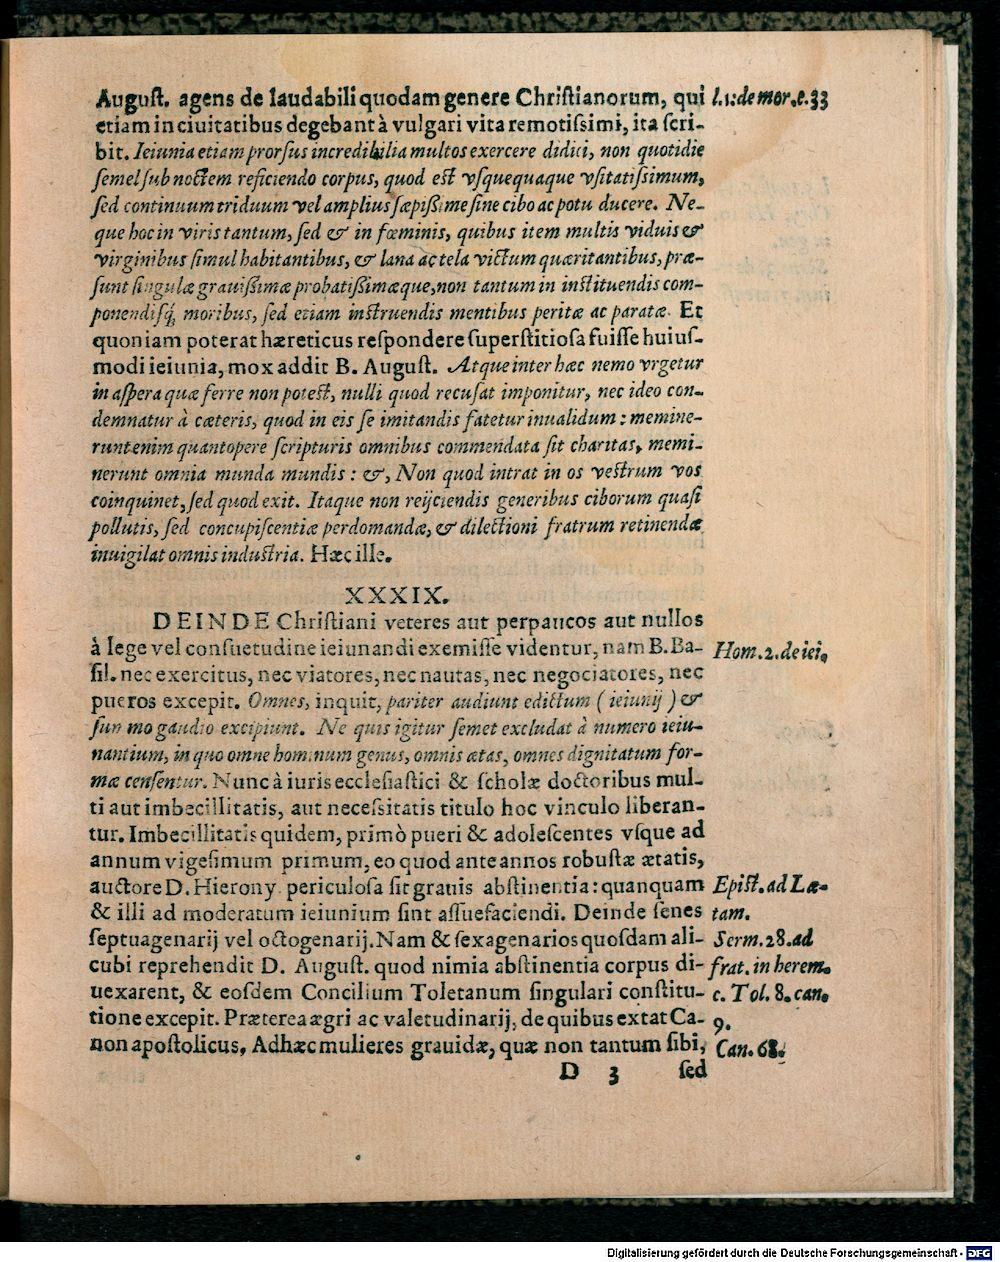 Auguſt. agens de laudabili quodam genere Chriſtianorum, qui l. 1. de mor. c. 33
etiam in ciuitatibus degebant à vulgari vita remotiſsimi, ita ſcri-
bit. Ieiunia etiam prorſus incredibilia multos exercere didici, non quotidie
ſemel ſub noctem reficiendo corpus, quod eſt vſquequaque vſitatiſsimum,
ſed continuum triduum vel amplius ſæpißime ſine cibo ac potu ducere. Ne-
que hoc in viris tantum, ſed & in fœminis, quibus item multis viduis &
virginibus ſimul habitantibus, & lana ac tela victum quæritantibus, præ-
ſunt ſingulæ grauißimæ probatißimæque, non tantum in inſtituendis com-
ponendisq́, moribus, ſed etiam inſtruendis mentibus peritæ ac paratæ. Et
quoniam poterat hæreticus reſpondere ſuperſtitioſa fuiſſe huiuſ-
modi ieiunia, mox addit B. Auguſt. Atque inter hæc nemo vrgetur
in aſpera quæ ferre non poteſt, nulli quod recuſat imponitur, nec ideo con-
demnatur à cæteris, quod in eis ſe imitandis fatetur inualidum: memine-
runt enim quantopere ſcripturis omnibus commendata ſit charitas, memi-
nerunt omnia munda mundis: &, Non quod intrat in os veſtrum vos
coinquinet, ſed quod exit. Itaque non reijciendis generibus ciborum quaſi
pollutis, ſed concupiſcentiæ perdomandæ, & dilectioni fratrum retinendæ
inuigilat omnis induſtria. Hæc ille.
XXXIX.
DEINDE Chriſtiani veteres aut perpaucos aut nullos
à lege vel conſuetudine ieiunandi exemiſſe videntur, nam B. Ba- Hom. 2. de iei.
ſil. nec exercitus, nec viatores, nec nautas, nec negociatores, nec
pueros excepit. Omnes, inquit, pariter audiunt edictum (ieiunij) &
ſummo gaudio excipiunt. Ne quis igitur ſemet excludat à numero ieiu-
nantium, in quo omne hominum genus, omnis ætas, omnes dignitatum for-
mæ cenſentur. Nunc à iuris eccleſiaſtici & ſcholæ doctoribus mul-
ti aut imbecillitatis, aut neceſsitatis titulo hoc vinculo liberan-
tur. Imbecillitatis quidem, primò pueri & adoleſcentes vſque ad
annum vigeſimum primum, eo quod ante annos robuſtæ ætatis,
auctore D. Hierony. periculoſa ſit grauis abſtinentia: quanquam Epiſt. ad Læ-
& illi ad moderatum ieiunium ſint aſſuefaciendi. Deinde ſenes tam.
ſeptuagenarij vel octogenarij. Nam & ſexagenarios quoſdam ali- Serm. 28. ad
cubi reprehendit D. Auguſt. quod nimia abſtinentia corpus di- frat. in herem.
uexarent, & eoſdem Concilium Toletanum ſingulari conſtitu- c. Tol. 8. can.
tione excepit. Præterea ægri ac valetudinarij, de quibus extat Ca- 9.
non apoſtolicus, Adhæc mulieres grauidæ, quæ non tantum ſibi, Can. 68.
D 3 ſed
Digitalisierung gefördert durch die Deutsche Forschungsgemeinschaft - DFG